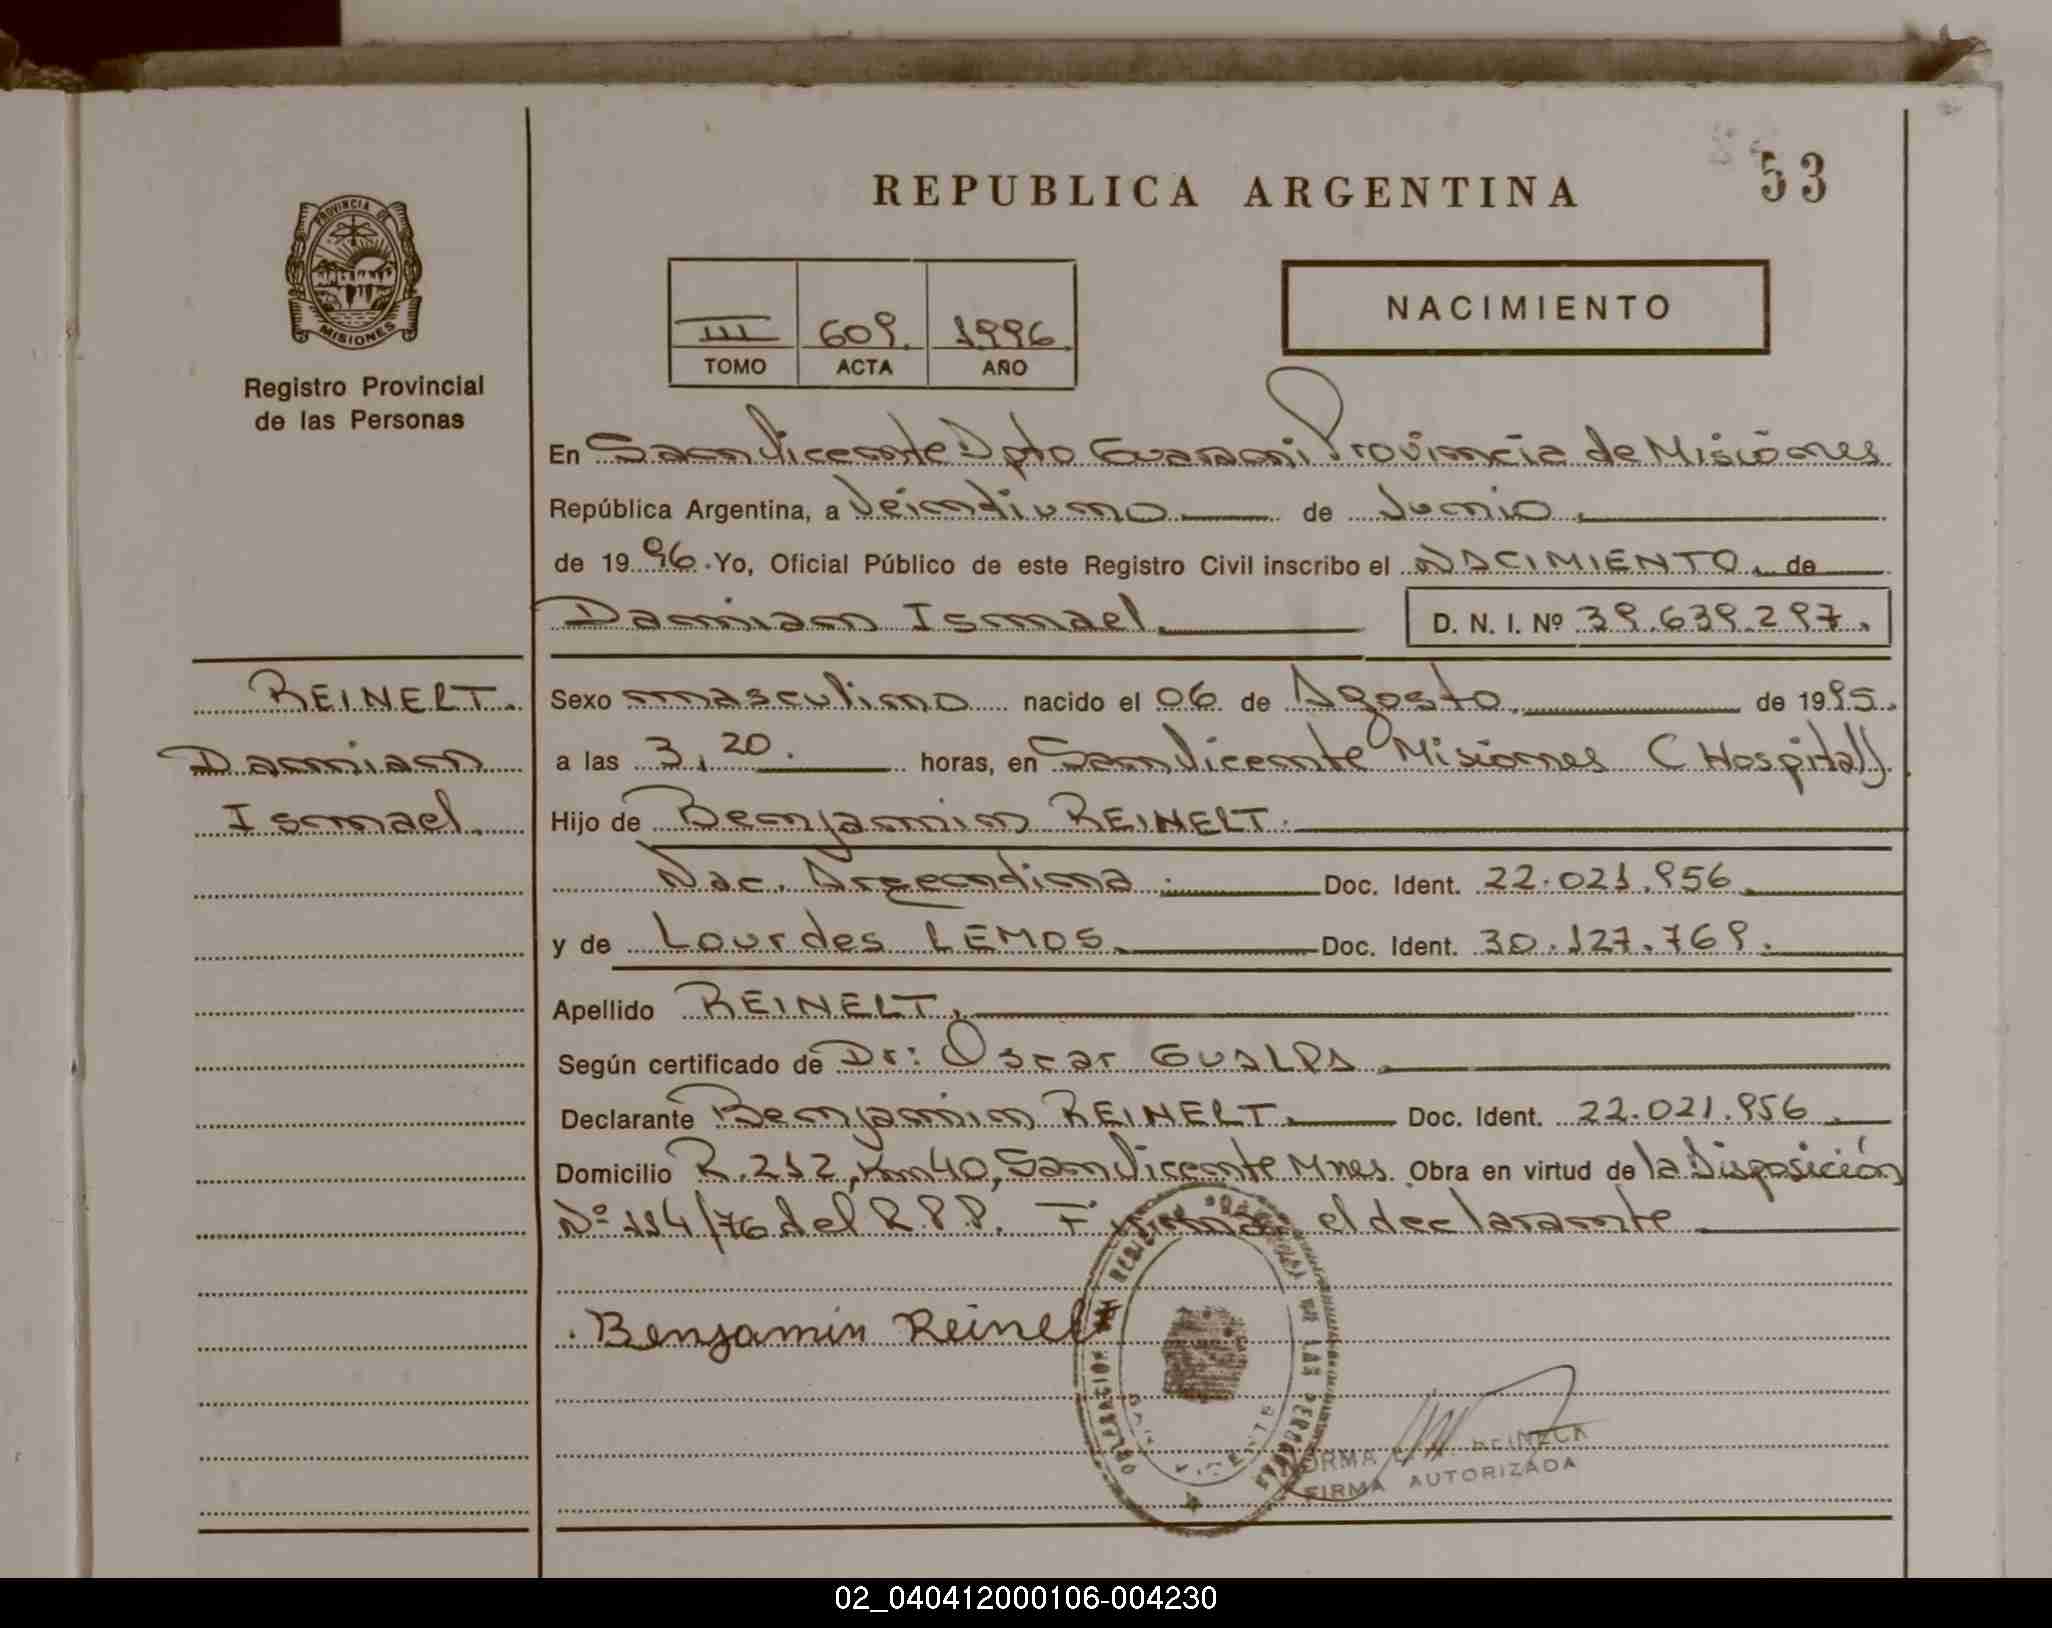 53
REPUBLICA ARGENTINA
PROVINCIA DE
MISIONES
Registro Provincial
de las Personas
NACIMIENTO
III 609. 1996.
TOMO ACTA AÑO
En San Vicente Dpto Guarani Provincia de Misiones
República Argentina, a Veintiuno de Junio.
de 1996. Yo, Oficial Público de este Registro Civil inscribo el NACIMIENTO. de
Damian Ismael. D. N. I. Nº 39.639.297.
REINELT.
Damian
Ismael.
Sexo masculino nacido el 06 de Agosto. de 1995.
a las 3,20. horas, en San Vicente Misiones (Hospital).
Hijo de Benjamin REINELT.
Nac. Argentina. Doc. Ident. 22.021.956
y de Lourdes LEMOS. Doc. Ident. 30.127.769.
Apellido REINELT.
Según certificado de Dr: Oscar GUALPA.
Declarante Benjamin REINELT. Doc. Ident. 22.021.956.
Domicilio R.212, Km 40, San Vicente Mnes. Obra en virtud de la Disposición
Nº 114/76 del R.P.P. Firma el declarante
Benjamin Reinelt
DELEGACION REGISTRO PROVINCIAL DE LAS PERSONAS
SAN VICENTE
NORMA
FIRMA AUTORIZADA
02_040412000106-004230